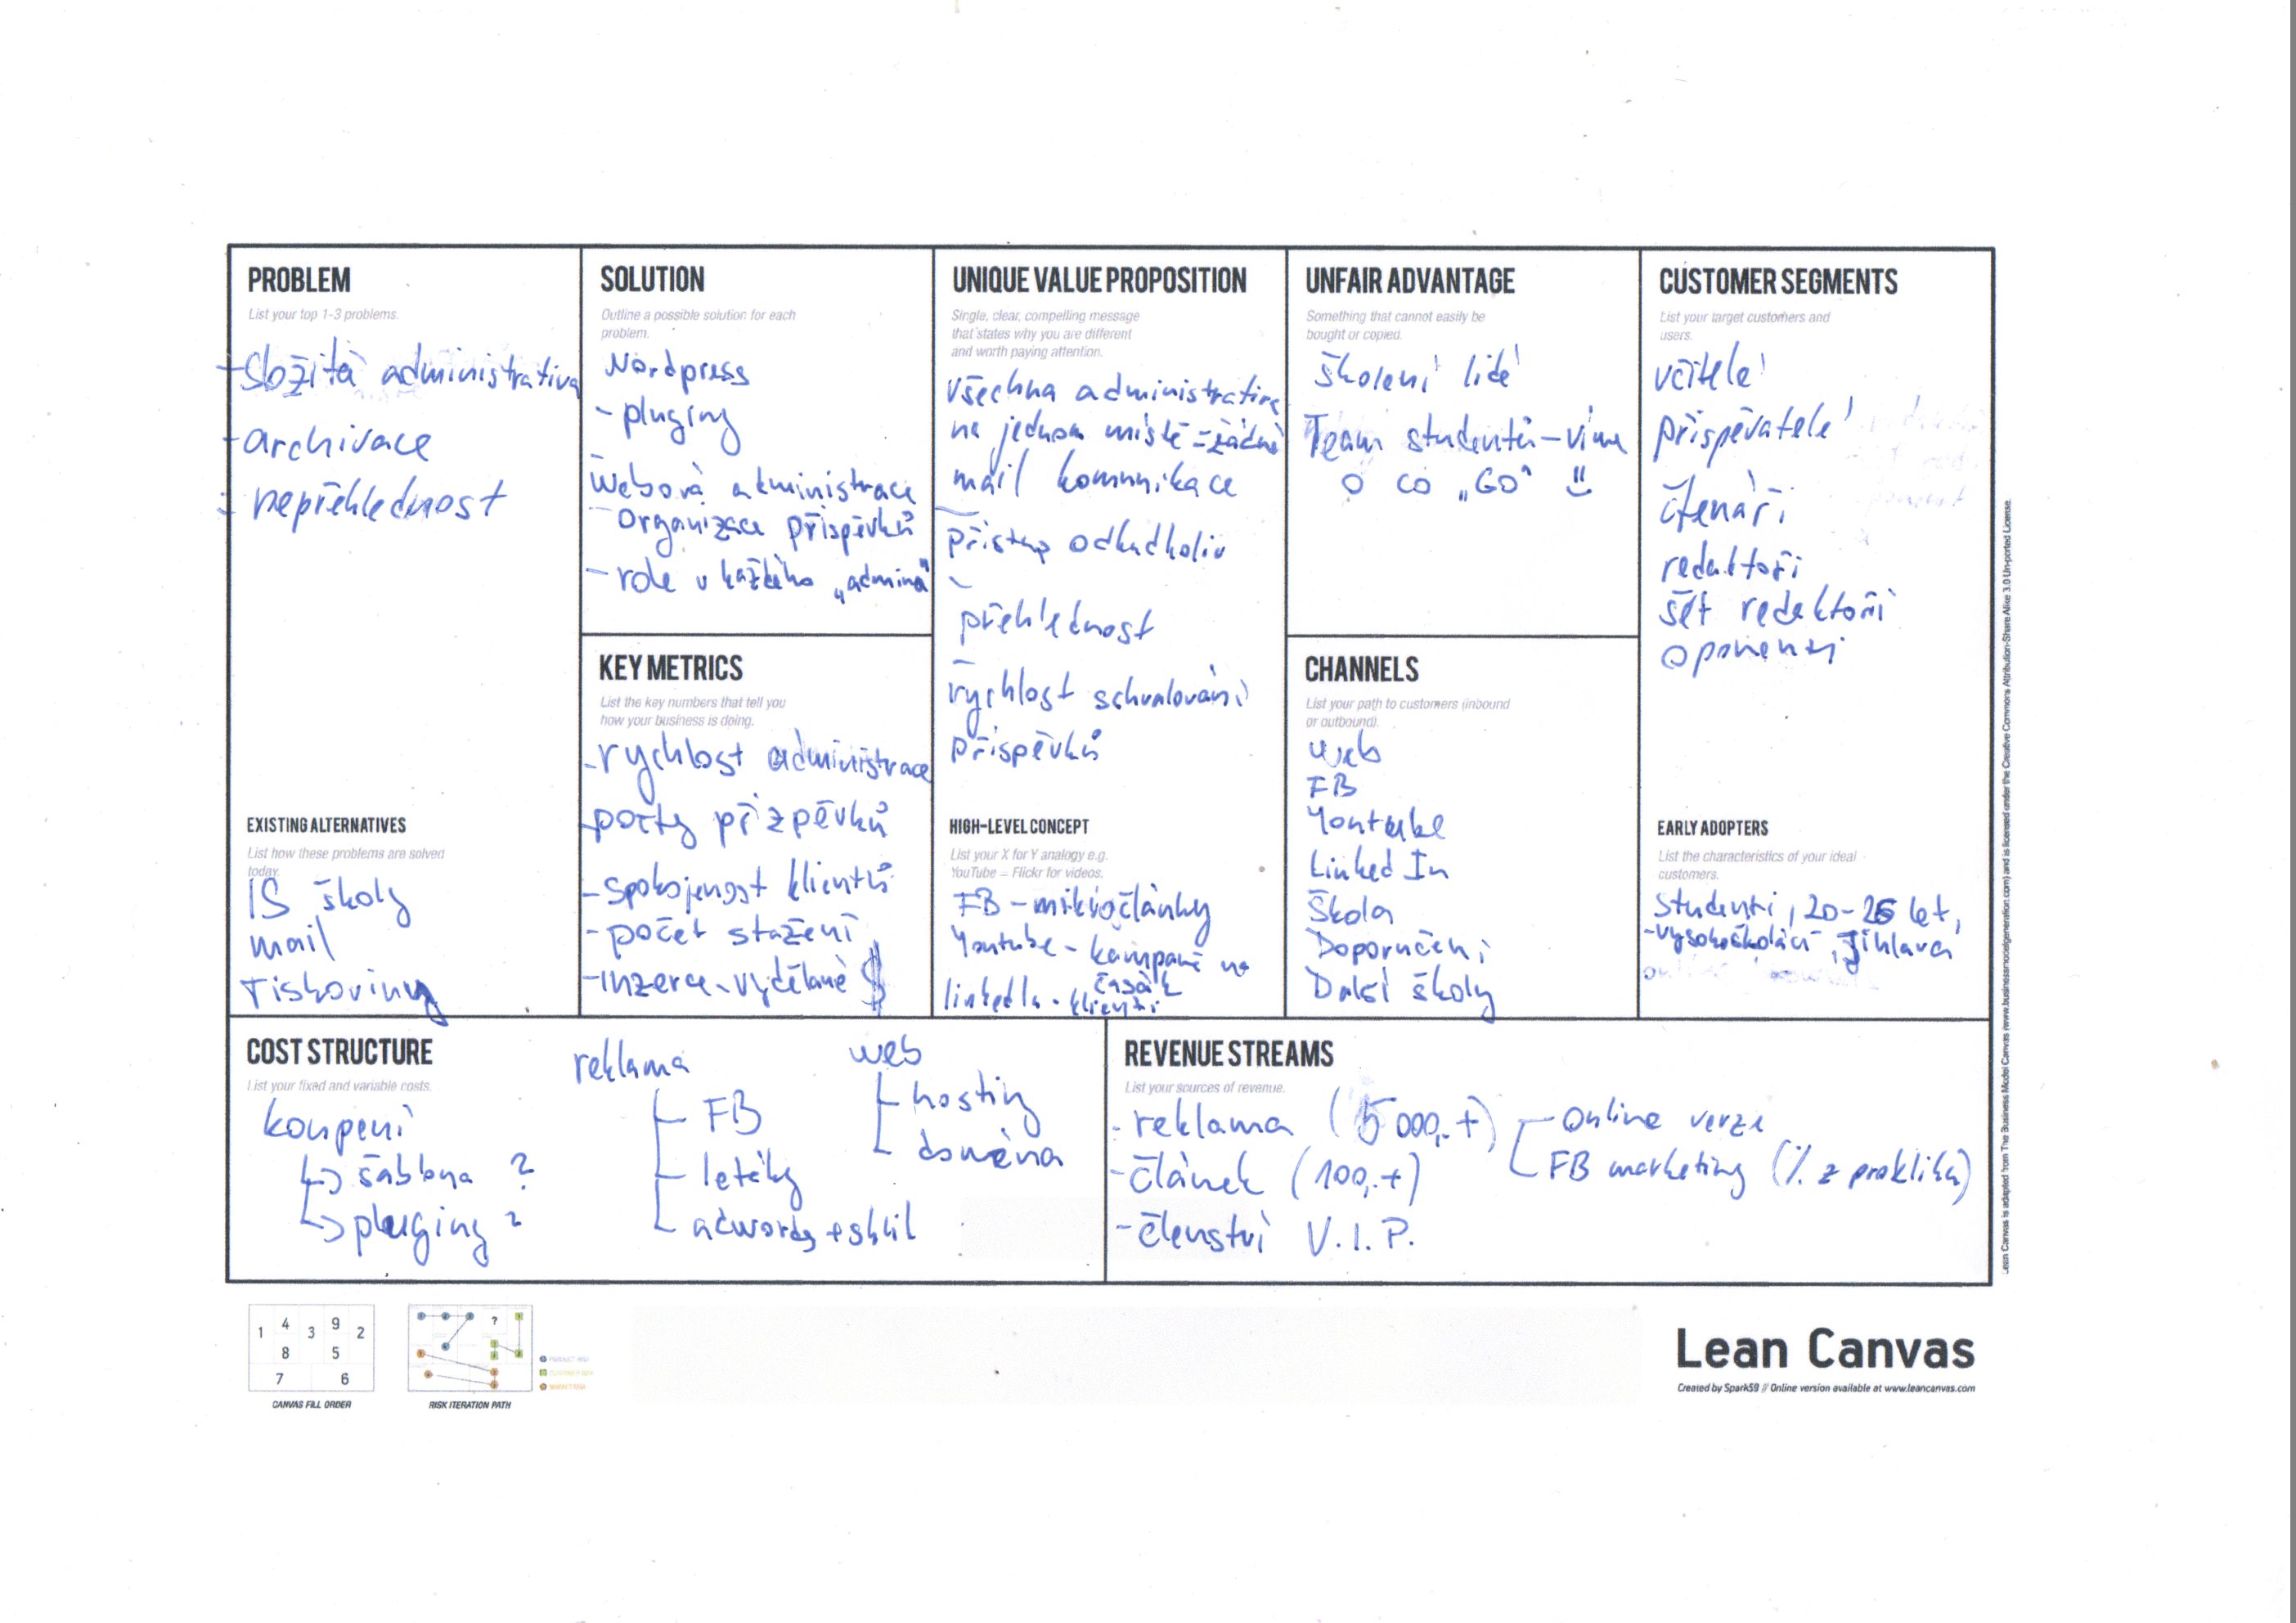 PROBLEM
List your top 1-3 problems.
- Složitá administrativa
- archivace
- nepřehlednost
EXISTING ALTERNATIVES
List how these problems are solved
today.
IS školy
mail
Tiskoviny
SOLUTION
Outline a possible solution for each
problem.
Wordpress
- pluginy
Webová administrace
- Organizace příspěvků
- role u každého „admina"
KEY METRICS
List the key numbers that tell you
how your business is doing.
- rychlost administrace
- počty přizpěvků
- Spokojenost klientů
- počet stažení
- Inzerce - vydělané $
UNIQUE VALUE PROPOSITION
Single, clear, compelling message
that states why you are different
and worth paying attention.
Všechna administrativa
na jednom místě = žádná
mail komunikace
přístup odkudkoliv
přehlednost
rychlost schvalování
příspěvků
HIGH-LEVEL CONCEPT
List your X for Y analogy e.g.
YouTube = Flickr for videos.
FB - mikročlánky
Youtube - kampaně na
časák
linkedIn - klienti
UNFAIR ADVANTAGE
Something that cannot easily be
bought or copied.
školení lidé
Team studentů - víme
o co „GO"
CHANNELS
List your path to customers (inbound
or outbound).
web
FB
Youtube
Linked In
Škola
Doporučení
Další školy
CUSTOMER SEGMENTS
List your target customers and
users.
učitelé
přispěvatelé
čtenáři
redaktoři
šéf redaktoři
oponenti
EARLY ADOPTERS
List the characteristics of your ideal
customers.
studenti, 20-26 let,
- vysokoškoláci, Jihlava
COST STRUCTURE
List your fixed and variable costs.
koupení
šablona ?
pluginy ?
reklama
FB
letáky
adwords + sklik
web
hosting
doména
REVENUE STREAMS
List your sources of revenue.
- reklama (5 000,- +)
Online verze
FB marketing (% z prokliku)
- článek (100,- +)
- členství V.I.P.
Lean Canvas is adapted from The Business Model Canvas (www.businessmodelgeneration.com) and is licensed under the Creative Commons Attribution-Share Alike 3.0 Un-ported License.
1 4 3 9 2
8 5
7 6
CANVAS FILL ORDER
?
RISK ITERATION PATH
Lean Canvas
Created by Spark59 // Online version available at www.leancanvas.com